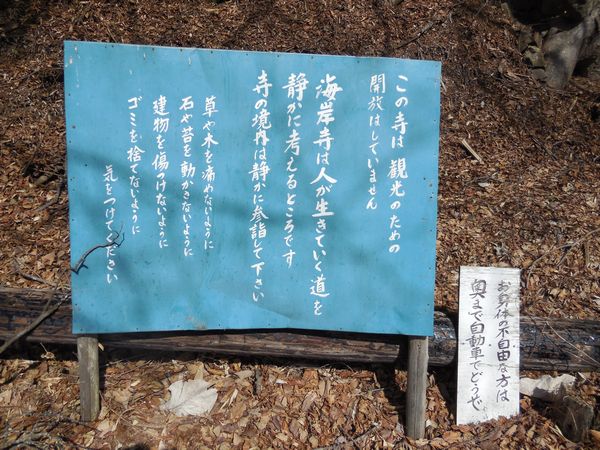 この寺は 観光のための
開放はしていません
海岸寺は人が生きていく道を
静かに考えるところです
寺の境内は静かに参詣して下さい
草や木を痛めないように
石や苔を動かさないように
建物を傷つけないように
ゴミを捨てないように
気をつけてください
お身体の不自由な方は
奥まで自動車でどうぞ